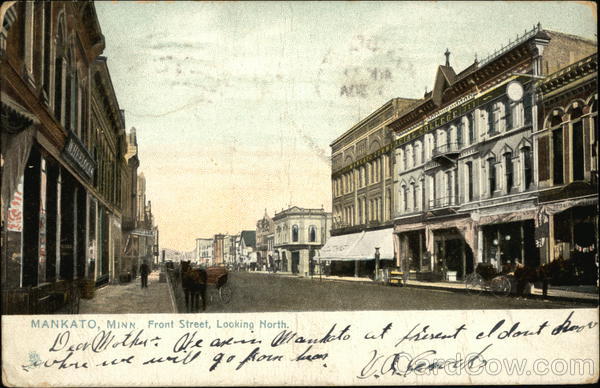 MANKATO, MINN. Front Street, Looking North.
Dear Mother - We are in Mankato at present & I don't know
where we will go from here
CardCow.com